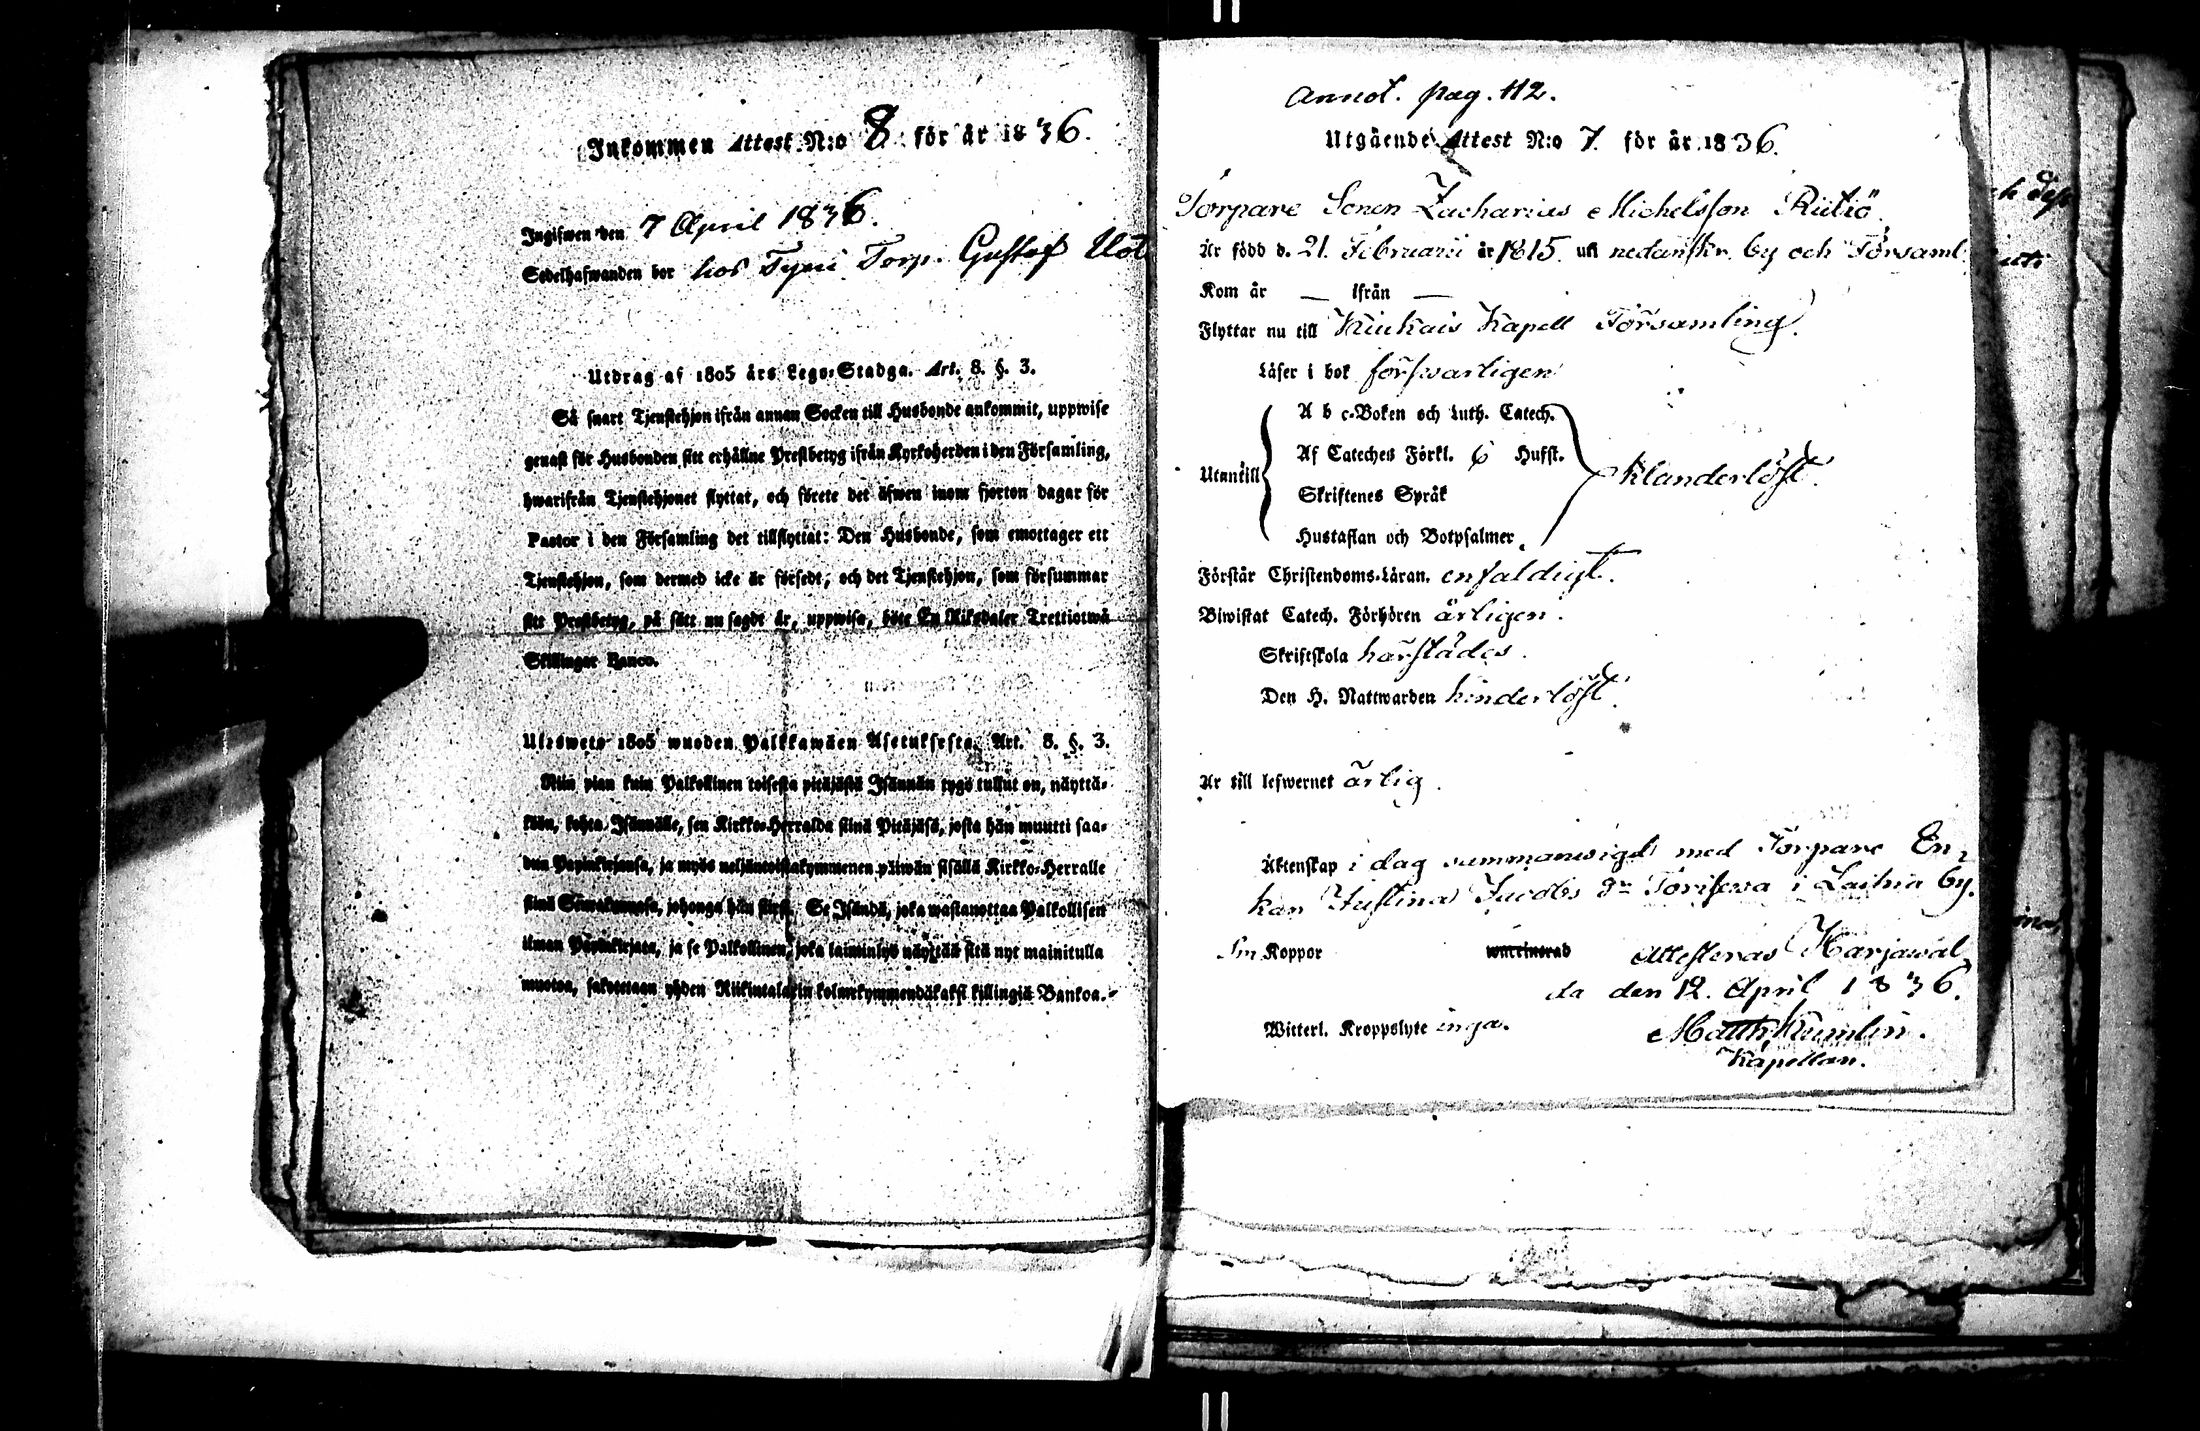 Inkommen Attest N:o 8 för år 1836.
Ingifwen den 7 April 1836.
Sedelhafwanden bor hos Tyni Torp. Gustaf
Utdrag af 1805 års Lego-Stadga. Art. 8. §. 3.
Så snart Tjenstehjon ifrån annan Socken till Husbonde ankommit, uppwise
genast för Husbonden sitt erhållne Prestbetyg ifrån Kyrkoherden i den Församling,
hwarifrån Tjenstehjonet flyttat, och förete det äfwen inom fjorton dagar för
Pastor i den Församling det tillflyttat: Den Husbonde, som emottager ett
Tjenstehjon, som dermed icke är försedt, och det Tjenstehjon, som försummar
sitt Prestbetyg, på sätt nu sagdt är, uppwisa, böte En Riksdaler Trettiotwå
Skillingar Banco.
Ulosweto 1805 wuoden Palkkawäen Asetuksesta. Art. 8. §. 3.
Niin pian kuin Palkollinen toisesta pitäjästä Isännän tygö tullut on, näyttä-
köön, kohta Isännälle, sen Kirkko-Herralda siinä Pitäjäsä, josta hän muutti saa-
dun Papinkirjansa, ja myös neljäntoistakymmenen päiwän sisällä Kirkko-Herralle
siinä Seurakunnasa, johonga hän siirsi. Se Isändä, joka wastanottaa Palkollisen
ilman Papinkirjata, ja se Palkollinen, joka laiminlyö näyttää sitä nyt mainitulla
muotoa, sakotetaan yhden Riikintalarin kolmekymmendäkaksi killingiä Bankoa.
Annot. pag. 112.
Utgående Attest N:o 7. för år 1836.
Torpare Sonen Zacharias Michelsson Riitiö.
Är född d. 21. Februarii år 1815. uti nedanskr. by och Församl.
Kom år — ifrån —
Flyttar nu till Kiukais Kapell Församling.
Läser i bok försvarligen
A b c-Boken och Luth. Catech.
Af Cateches Förkl. 6 Hufst.
Utantill
Klanderlöst.
Skriftenes Språk
Hustaflan och Botpsalmer.
Förstår Christendoms-Läran. enfaldigt.
Biwistat Catech. Förhören årligen.
Skriftskola härstädes.
Den H. Nattwarden hinderlöst.
Är till lefwernet ärlig.
Äktenskap i dag sammanwigd med Torpare En-
kan Justina Jacobs dr i by.
Koppor waccinerad Attesteras Harjawal-
da den 12. April 1836.
Witterl. Kroppslyte inga.
Matth. Kumlin.
Kapellan.